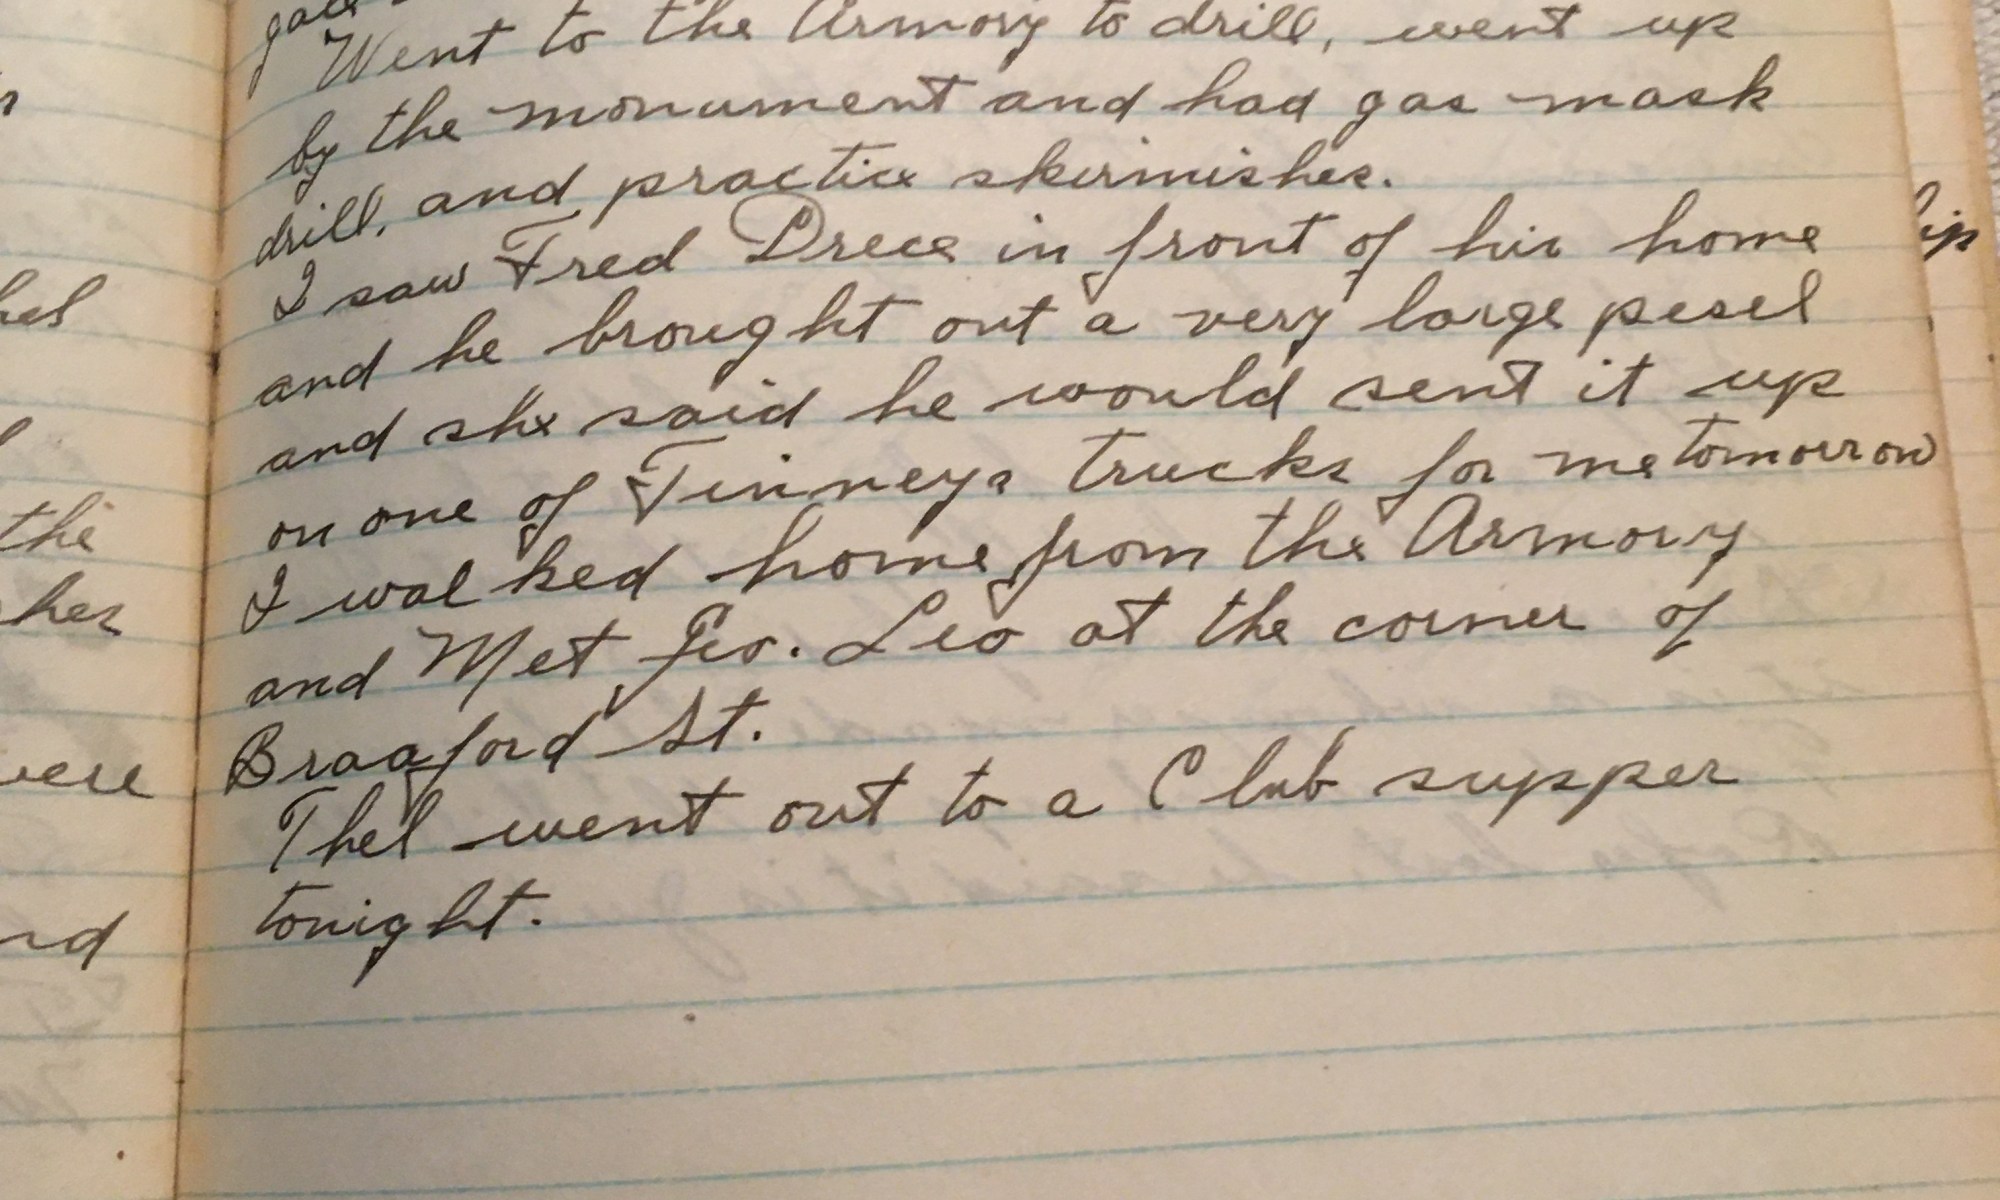 Went to the Armory to drill, went up
by the monument and had gas mask
drill, and practice skirmishes.
I saw Fred Drece in front of his home
and he brought out a very large pesel
and she said he would sent it up
on one of Tinneys trucks for me tomorrow
I walked home from the Armory
and Met Geo. Leo at the corner of
Braaford St.
Thel went out to a Club supper
tonight.
the
nd